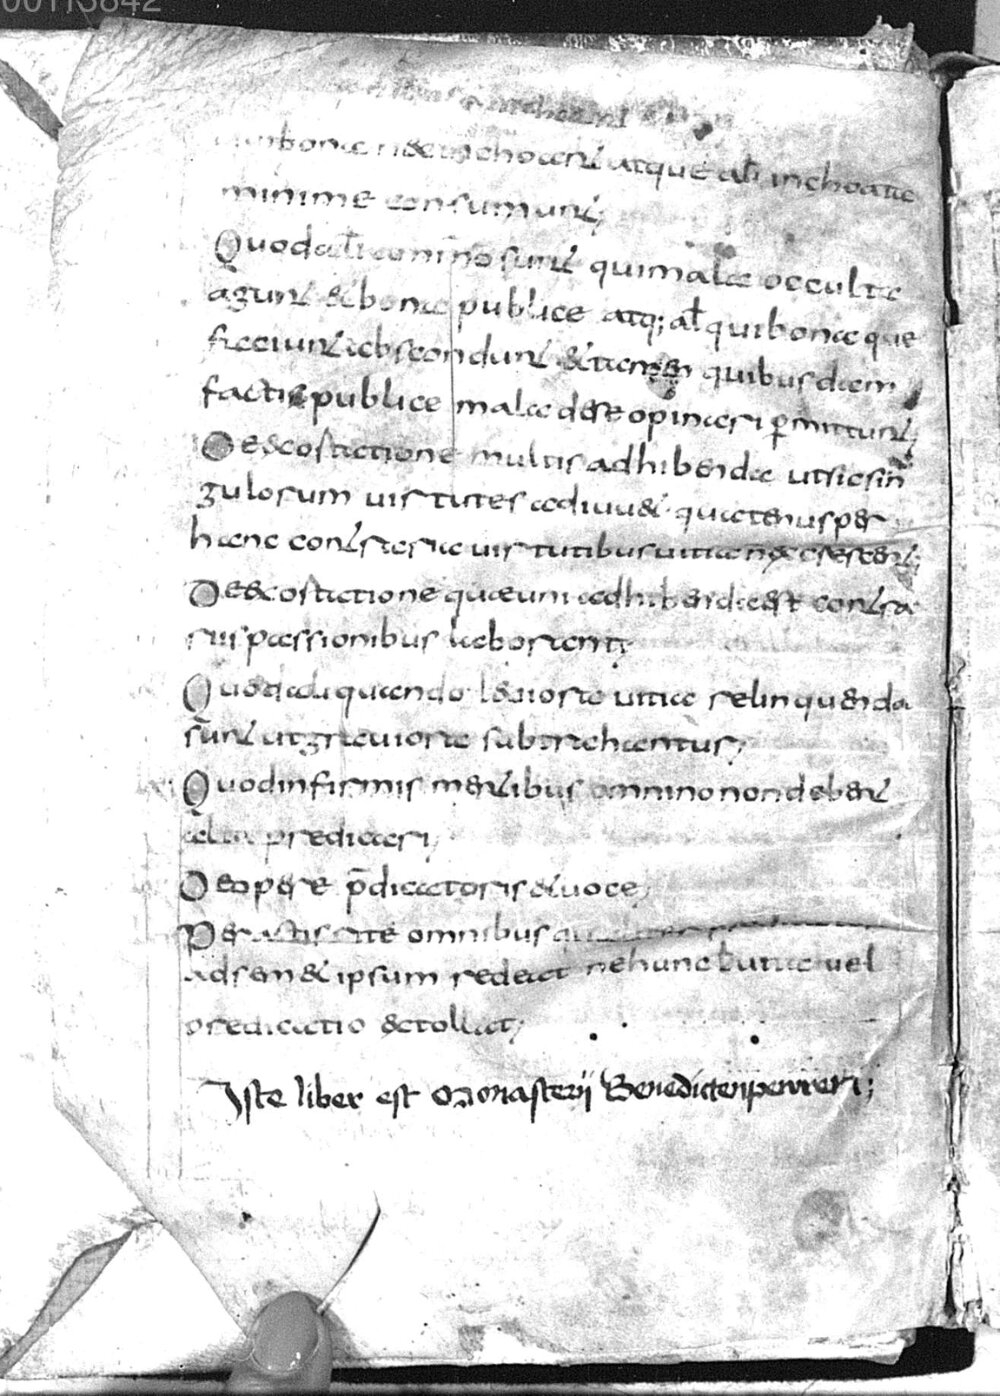 00113842
bona nec inchoant atque ali inchoata
minime consumunt;
Quod ali comino sunt qui mala occulte
agunt & bona publice atq; al qui bona que
faciunt abscondunt & tamen quibusdam
factis publice mala de se opinari p̄mittunt;
De exortatione multis adhibenda ut sic sin
gulorum uirtutes adiuu& quatenus per
hanc contraria uirtutibus uitia
De exortatione quae uni adhibenda est contra
riis passionibus laboranti;
Quod aliquando leuiora uitia relinquenda
sunt ut grauiora subtrahantur;
Quod infirmis mentibus omnino non debent
alta predicari;
De opere p̄dicatoris & uoce;
Peractis rite omnibus
ad sem&ipsum redeat ne hunc uel
predicatio extollat;
Iste liber est Monasterij Benedictenpewren;